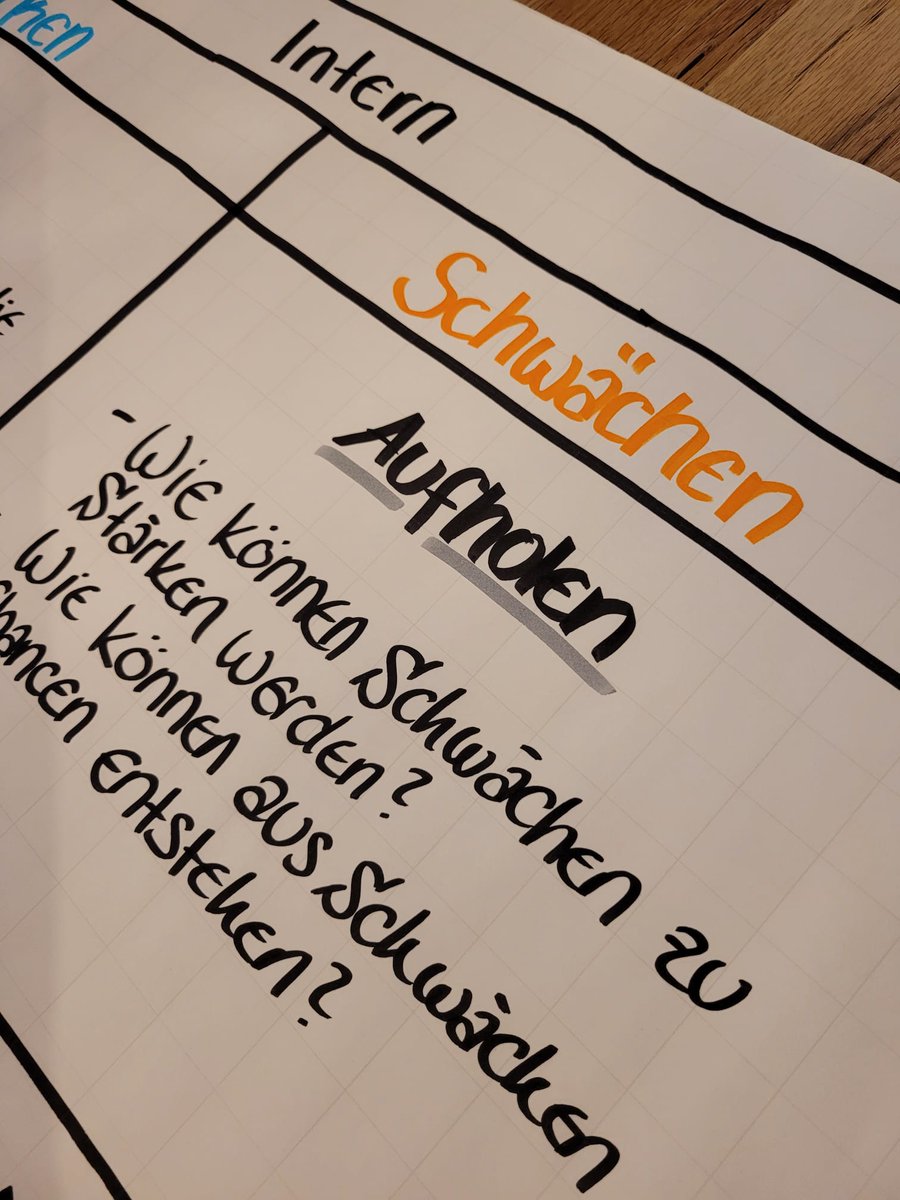 Intern
Schwächen
Aufholen
- Wie können Schwächen zu
Stärken werden?
Wie können aus Schwächen
Chancen entstehen?